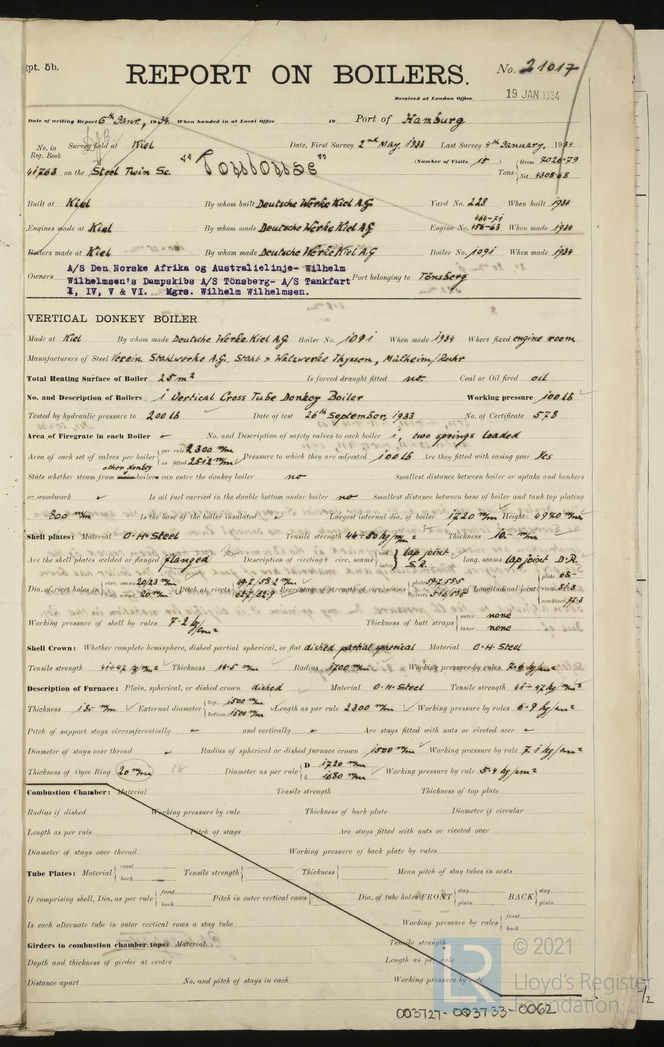 Rpt. 5b.
REPORT ON BOILERS.
No. 21017
Received at London Office
19 JAN 1934
Date of writing Report 6th Janr., 1934. When handed in at Local Office 19 Port of Hamburg
No. in Reg. Book Survey held at Kiel Date, First Survey 2nd May, 1933 Last Survey 4th January, 1934
(Number of Visits 15)
41763 on the Steel Twin Sc. "Toulouse" Tons Gross 7026.79 Net 4308.68
Built at Kiel By whom built Deutsche Werke Kiel A.G. Yard No. 228 When built 1934
Engines made at Kiel By whom made Deutsche Werke Kiel A.G. Engine No. When made 1934
Boilers made at Kiel By whom made Deutsche Werke Kiel A.G. Boiler No. 1091 When made 1934
Owners A/S Den Norske Afrika og Australielinje- Wilhelm
Wilhelmsen's Dampskibs A/S Tönsberg- A/S Tankfart
I, IV, V & VI. Mgrs. Wilhelm Wilhelmsen.
Port belonging to Tönsberg
VERTICAL DONKEY BOILER
Made at Kiel By whom made Deutsche Werke Kiel A.G. Boiler No. 1091 When made 1934 Where fixed engine room
Manufacturers of Steel Verein. Stahlwerke A.G., Stahl & Walzwerke Thyssen, Mülheim/Ruhr
Total Heating Surface of Boiler 25 m² Is forced draught fitted no. Coal or Oil fired oil
No. and Description of Boilers 1 Vertical Cross Tube Donkey Boiler Working pressure 100 lb
Tested by hydraulic pressure to 200 lb Date of test 26th September, 1933 No. of Certificate 578
Area of Firegrate in each Boiler - No. and Description of safety valves to each boiler 1, two springs loaded
Area of each set of valves per boiler per rule 2300 m/m as fitted 2512 m/m Pressure to which they are adjusted 100 lb Are they fitted with easing gear yes
State whether steam from other donkey boilers can enter the donkey boiler no Smallest distance between boiler or uptake and bunkers
or woodwork Is oil fuel carried in the double bottom under boiler no Smallest distance between base of boiler and tank top plating
800 m/m Is the base of the boiler insulated Largest internal dia. of boiler 1720 m/m Height 4970 m/m
Shell plates: Material O.H. Steel Tensile strength 44-50 kg/m/m² Thickness 10. m/m
Are the shell plates welded or flanged flanged Description of riveting: circ. seams end lap joint inter. S.R. long. seams lap joint D.R.
Dia. of rivet holes in Pitch of rivets Percentage of strength of circ. seams Longitudinal joint
Working pressure of shell by rules 7.2 kg/cm² Thickness of butt straps outer none inner none
Shell Crown: Whether complete hemisphere, dished partial spherical, or flat dished partial spherical Material O.H. Steel
Tensile strength 41-47 kg/m/m² Thickness 14.5 m/m Radius 1700 m/m Working pressure by rules 7.6 kg/cm²
Description of Furnace: Plain, spherical, or dished crown dished Material O.H. Steel Tensile strength 41-47 kg/m/m²
Thickness External diameter top 1500 m/m bottom 1500 m/m Length as per rule 2300 m/m Working pressure by rules 6.9 kg/cm²
Pitch of support stays circumferentially - and vertically - Are stays fitted with nuts or riveted over -
Diameter of stays over thread - Radius of spherical or dished furnace crown 1500 m/m Working pressure by rule 7.1 kg/cm²
Thickness of Ogee Ring 20 m/m 18 Diameter as per rule D 1720 m/m d 1080 m/m Working pressure by rule 5.4 kg/cm²
Combustion Chamber: Material Tensile strength Thickness of top plate
Radius if dished Working pressure by rule Thickness of back plate Diameter if circular
Length as per rule Pitch of stays Are stays fitted with nuts or riveted over
Diameter of stays over thread Working pressure of back plate by rules
Tube Plates: Material front back Tensile strength Thickness Mean pitch of stay tubes in nests
If comprising shell, Dia. as per rule front back Pitch in outer vertical rows Dia. of tube holes FRONT stay plain BACK stay plain
Is each alternate tube in outer vertical rows a stay tube Working pressure by rules front back
Girders to combustion chamber tops: Material Tensile strength
Depth and thickness of girder at centre Length as per rule
Distance apart No. and pitch of stays in each Working pressure by rule
© 2021
Lloyd's Register
Foundation
003727-003733-0062